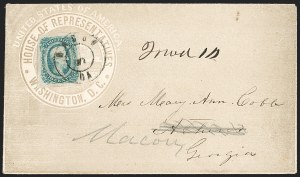 UNITED STATES OF AMERICA
HOUSE OF REPRESENTATIVES
WASHINGTON, D. C.
GA
Mrs Mary Ann Cobb
Athens
Macon
Georgia